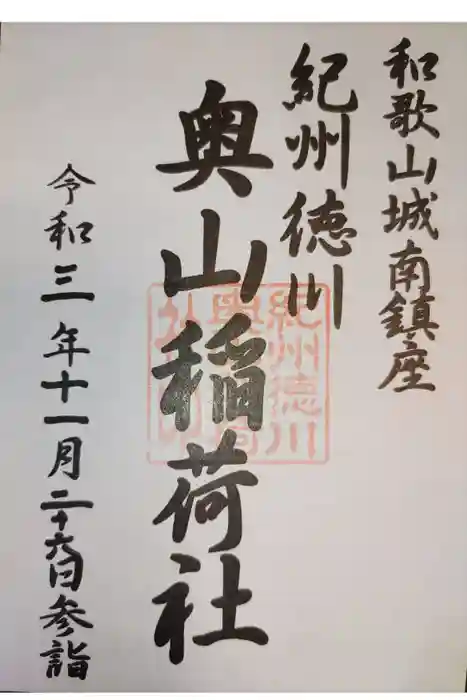 和歌山城南鎮座
紀州徳川
奥山稲荷社
令和三年十一月二十六日参詣
紀州徳川